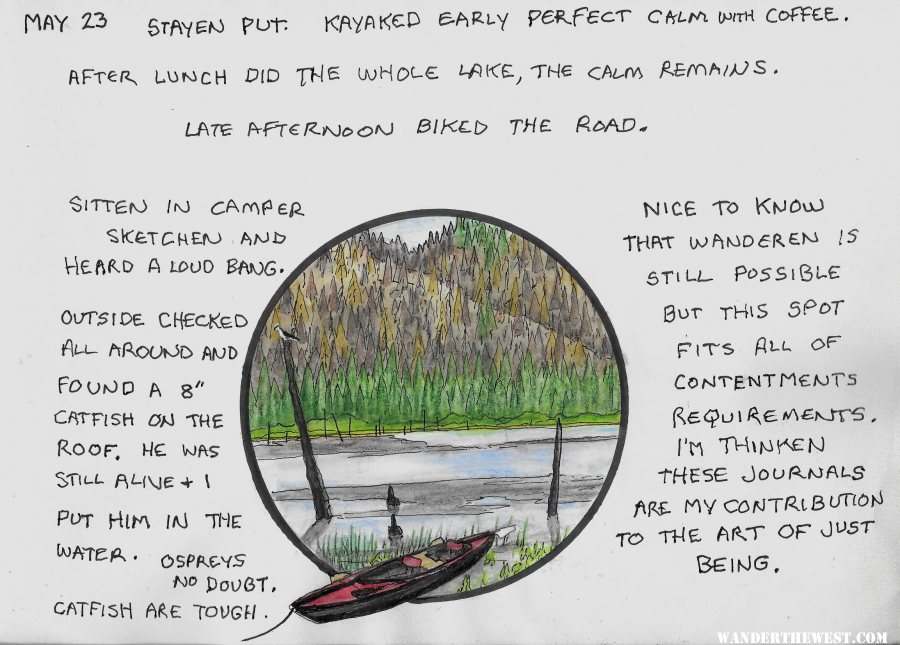 MAY 23 STAYEN PUT. KAYAKED EARLY PERFECT CALM WITH COFFEE.
AFTER LUNCH DID THE WHOLE LAKE, THE CALM REMAINS.
LATE AFTERNOON BIKED THE ROAD.
SITTEN IN CAMPER
SKETCHEN AND
HEARD A LOUD BANG.
OUTSIDE CHECKED
ALL AROUND AND
FOUND A 8"
CATFISH ON THE
ROOF. HE WAS
STILL ALIVE + I
PUT HIM IN THE
WATER. OSPREYS
NO DOUBT.
CATFISH ARE TOUGH.
NICE TO KNOW
THAT WANDEREN IS
STILL POSSIBLE
BUT THIS SPOT
FITS ALL OF
CONTENTMENTS
REQUIREMENTS.
I'M THINKEN
THESE JOURNALS
ARE MY CONTRIBUTION
TO THE ART OF JUST
BEING.
WANDERTHEWEST.COM